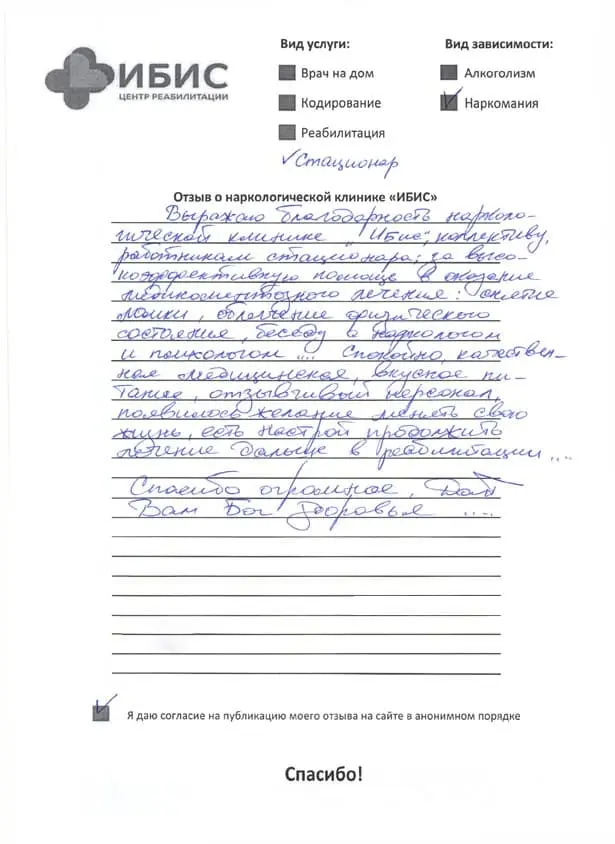 ИБИС
ЦЕНТР РЕАБИЛИТАЦИИ
Вид услуги:
Врач на дом
Кодирование
Реабилитация
✓Стационар
Вид зависимости:
Алкоголизм
Наркомания
Отзыв о наркологической клинике «ИБИС»
Выражаю благодарность нарколо-
гической клинике "Ибис", коллективу,
работникам стационара; за высо-
коэффективную помощь в оказание
медикоментозного лечения: снятие
ломки, облегчение физического
состояния, беседу с наркологом
и психологом... Спокойно, качествен-
ная медицинская, вкусное пи-
тание, отзывчивый персонал,
появилось желание менять свою
жизнь, есть настрой продолжить
лечение дальше в реабилитации....
Спасибо огромное, Дай
Вам Бог Здоровья ....
Я даю согласие на публикацию моего отзыва на сайте в анонимном порядке
Спасибо!